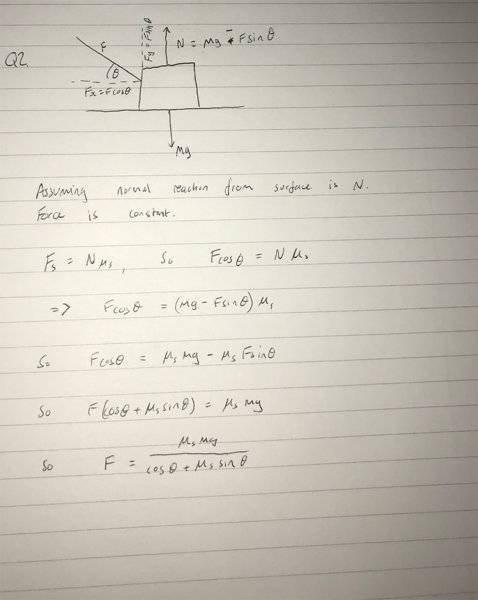 Q2
F
θ
Fx = Fcosθ
Fy = Fsinθ
N = Mg - Fsinθ
Mg
Assuming normal reaction from surface is N.
Force is constant.
Fs = Nμs, So Fcosθ = Nμs
=> Fcosθ = (Mg - Fsinθ) μs
So Fcosθ = μs Mg - μs Fsinθ
So F(cosθ + μs sinθ) = μs Mg
So F = μs mg / cosθ + μs sinθ